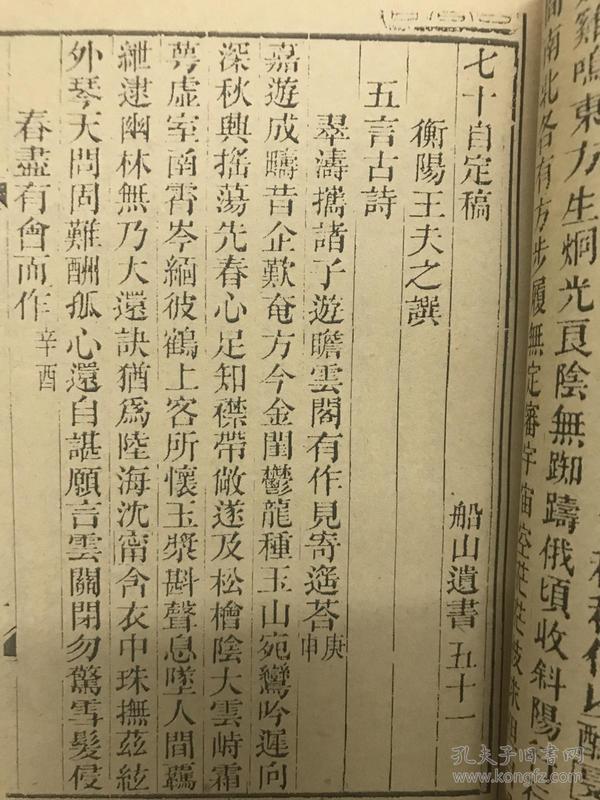 七十自定稿 船山遺書五十一
衡陽王夫之譔
五言古詩
翠濤攜諸子遊瞻雲閣有作見寄遙荅庚申
嘉遊成疇昔企歎奄方今金閨鬱龍種玉山宛鸞吟遲向
深秋興搖蕩先春心足知襟帶敞遂及松檜陰大雲峙霜
蕚虛室南霄岑緬彼鶴上客所懷玉漿斟聲息墜人間羈
紲逮幽林無乃大還訣猶爲陸海沈甯含衣中珠撫茲絃
外琴天問固難酬孤心還自諶願言雲關閉勿驚雪髮侵
春盡有會而作辛酉
南北各有方步履無定審宇宙空
雞鳴東方生烱光良陰無踟躕俄頃收斜陽
孔夫子旧书网
www.kongfz.com